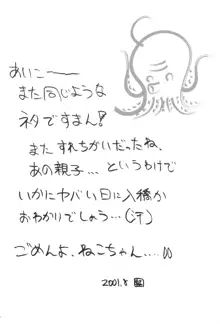 あいこ――
また同じような
ネタですまん!
また すれちがいだったね、
あの親子... というわけで
いかにヤバい日に入稿か
おわかりでしょう...(汗)
ごめんよ、ねこちゃん....
2001.8